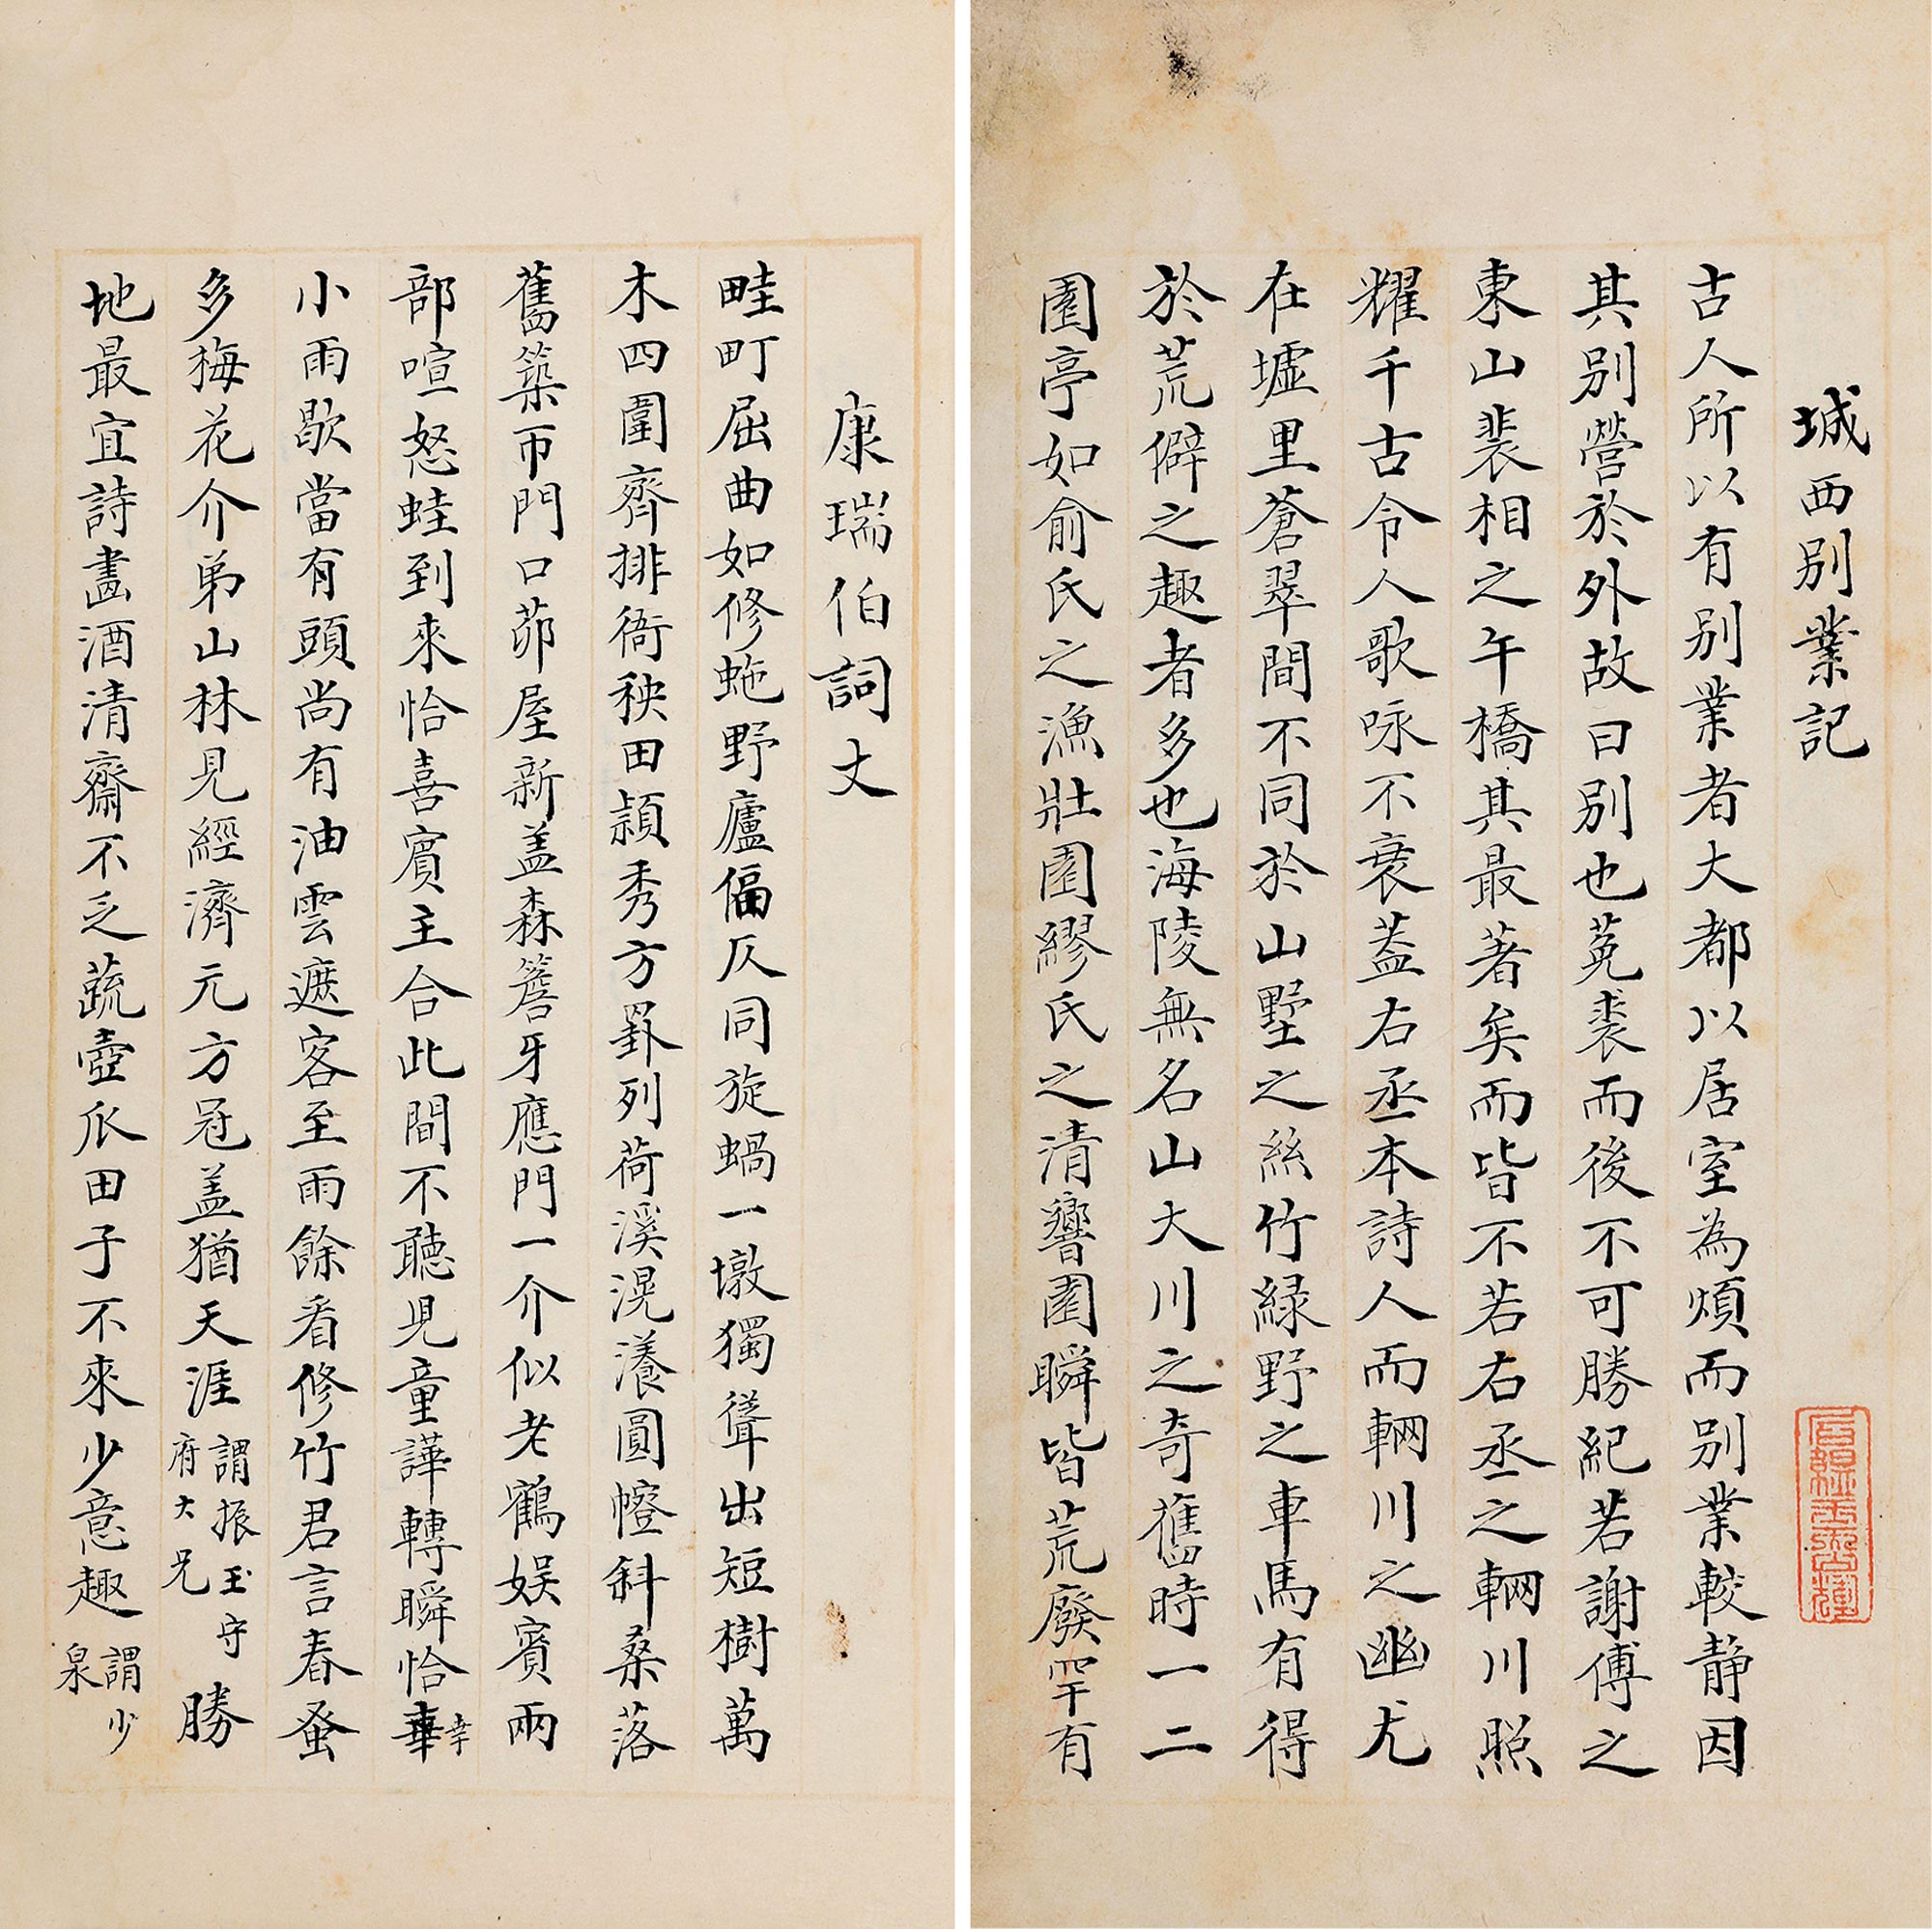 城西別業記
古人所以有別業者大都以居室為煩而別業較靜因
其別營於外故曰別也菟裘而後不可勝紀若謝傅之
東山裴相之午橋其最著矣而皆不若右丞之輞川照
耀千古令人歌咏不衰蓋右丞本詩人而輞川之幽尤
在墟里蒼翠間不同於山墅之絲竹綠野之車馬有得
於荒僻之趣者多也海陵無名山大川之奇舊時一二
園亭如俞氏之漁壯園繆氏之清響園瞬皆荒廢罕有
康瑞伯詞丈
畦町屈曲如修虵野廬偪仄同旋蝸一墩獨聳出短樹萬
木四圍齊排衙秧田穎秀方罫列荷溪滉瀁圓幢斜桑落
舊築帀門口茆屋新盖森簷牙應門一介似老鶴娛賓兩
部喧怒蛙到來恰喜賓主合此間不聽児童譁轉瞬恰華幸
小雨歇當有頭尚有油雲遮客至雨餘看修竹君言春蚤
多梅花介弟山林見經濟元方冠盖猶天涯謂振玉守府大兄勝
地最宜詩畫酒清齋不乏蔬壺瓜田子不來少意趣謂少泉